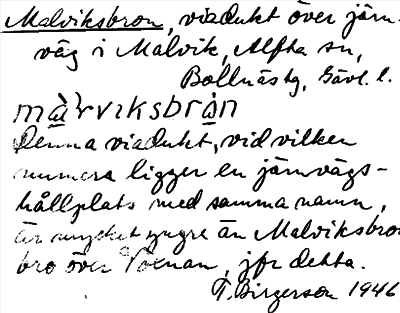 Malviksbron, viadukt över järn-
väg i Malvik, Alfta sn,
Bollnäs tg, Gävl. l.
màrviksbròn
Denna viadukt, vid vilken
numera ligger en järnvägs-
hållplats med samma namn,
är mycket yngre än Malviksbron
bro över Voxnan, jfr detta.
T. Birgerson 1946